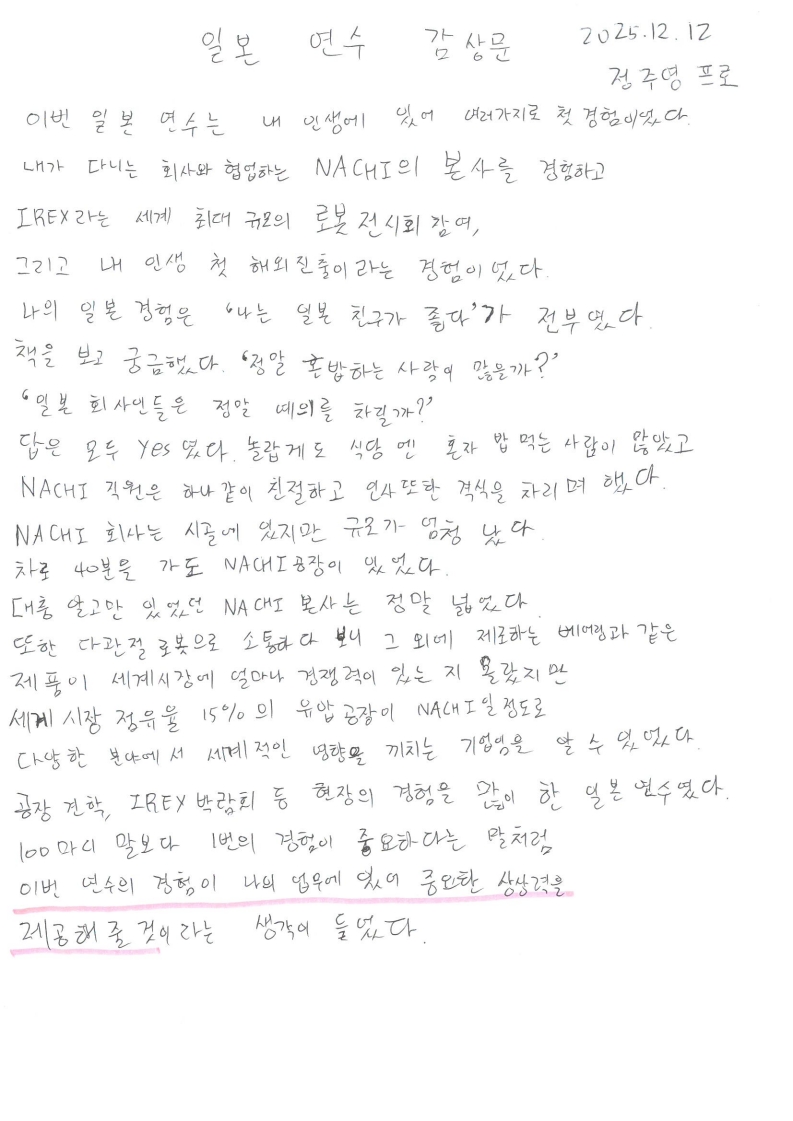 일본 연수 감상문 2025.12.12
정주영 프로
이번 일본 연수는 내 인생에 있어 여러가지로 첫 경험이었다.
내가 다니는 회사와 협업하는 NACHI의 본사를 경험하고
IREX라는 세계 최대 규모의 로봇전시회 참여,
그리고 내 인생 첫 해외진출이라는 경험이었다.
나의 일본 경험은 '나는 일본 친구가 좋다'가 전부였다.
책을 보고 궁금했다. '정말 혼밥하는 사람이 많을까?'
'일본 회사인들은 정말 예의를 차릴까?'
답은 모두 yes였다. 놀랍게도 식당엔 혼자 밥 먹는 사람이 많았고
NACHI 직원은 하나같이 친절하고 인사또한 격식을 차리며 했다.
NACHI 회사는 시골에 있지만 규모가 엄청 났다.
차로 40분을 가도 NACHI공장이 있었다.
대충 알고만 있었던 NACHI 본사는 정말 넓었다.
또한 다관절 로봇으로 소통하다 보니 그 외에 제조하는 베어링과 같은
제품이 세계시장에 얼마나 경쟁력이 있는 지 몰랐지만
세계시장 점유율 15%의 유압공장이 NACHI일정도로
다양한 분야에서 세계적인 영향을 끼치는 기업임을 알 수 있었다.
공장 견학, IREX박람회 등 현장의 경험을 많이 한 일본 연수였다.
100마디 말보다 1번의 경험이 중요하다는 말처럼
이번 연수의 경험이 나의 업무에 있어 중요한 상상력을
제공해 줄 것이라는 생각이 들었다.